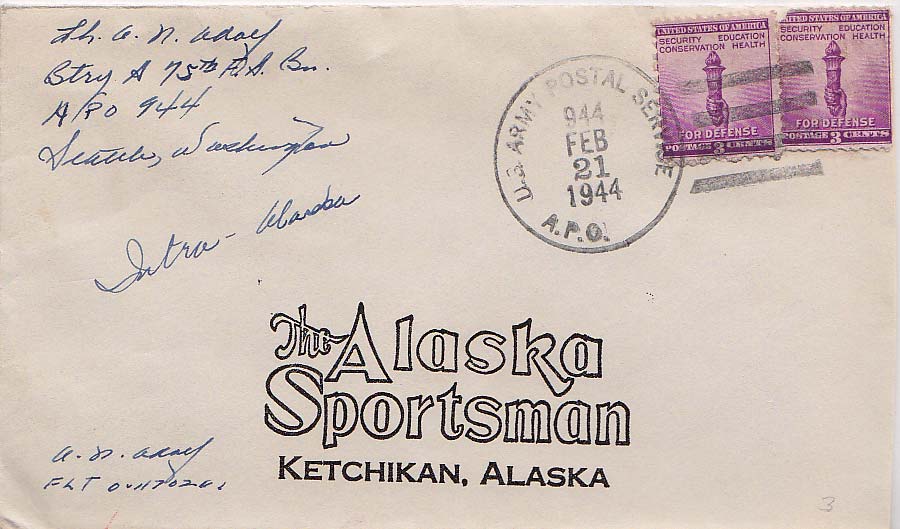 Lt. A. N. Adolf
Btry A 75th F.A. Bn.
APO 944
Seattle, Washington
Intra - Alaska
U.S. ARMY POSTAL SERVICE
944
FEB
21
1944
A.P.O.
UNITED STATES OF AMERICA
SECURITY EDUCATION
CONSERVATION HEALTH
FOR DEFENSE
POSTAGE 3 CENTS
UNITED STATES OF AMERICA
SECURITY EDUCATION
CONSERVATION HEALTH
FOR DEFENSE
POSTAGE 3 CENTS
The Alaska
Sportsman
KETCHIKAN, ALASKA
A. N. Adolf
3